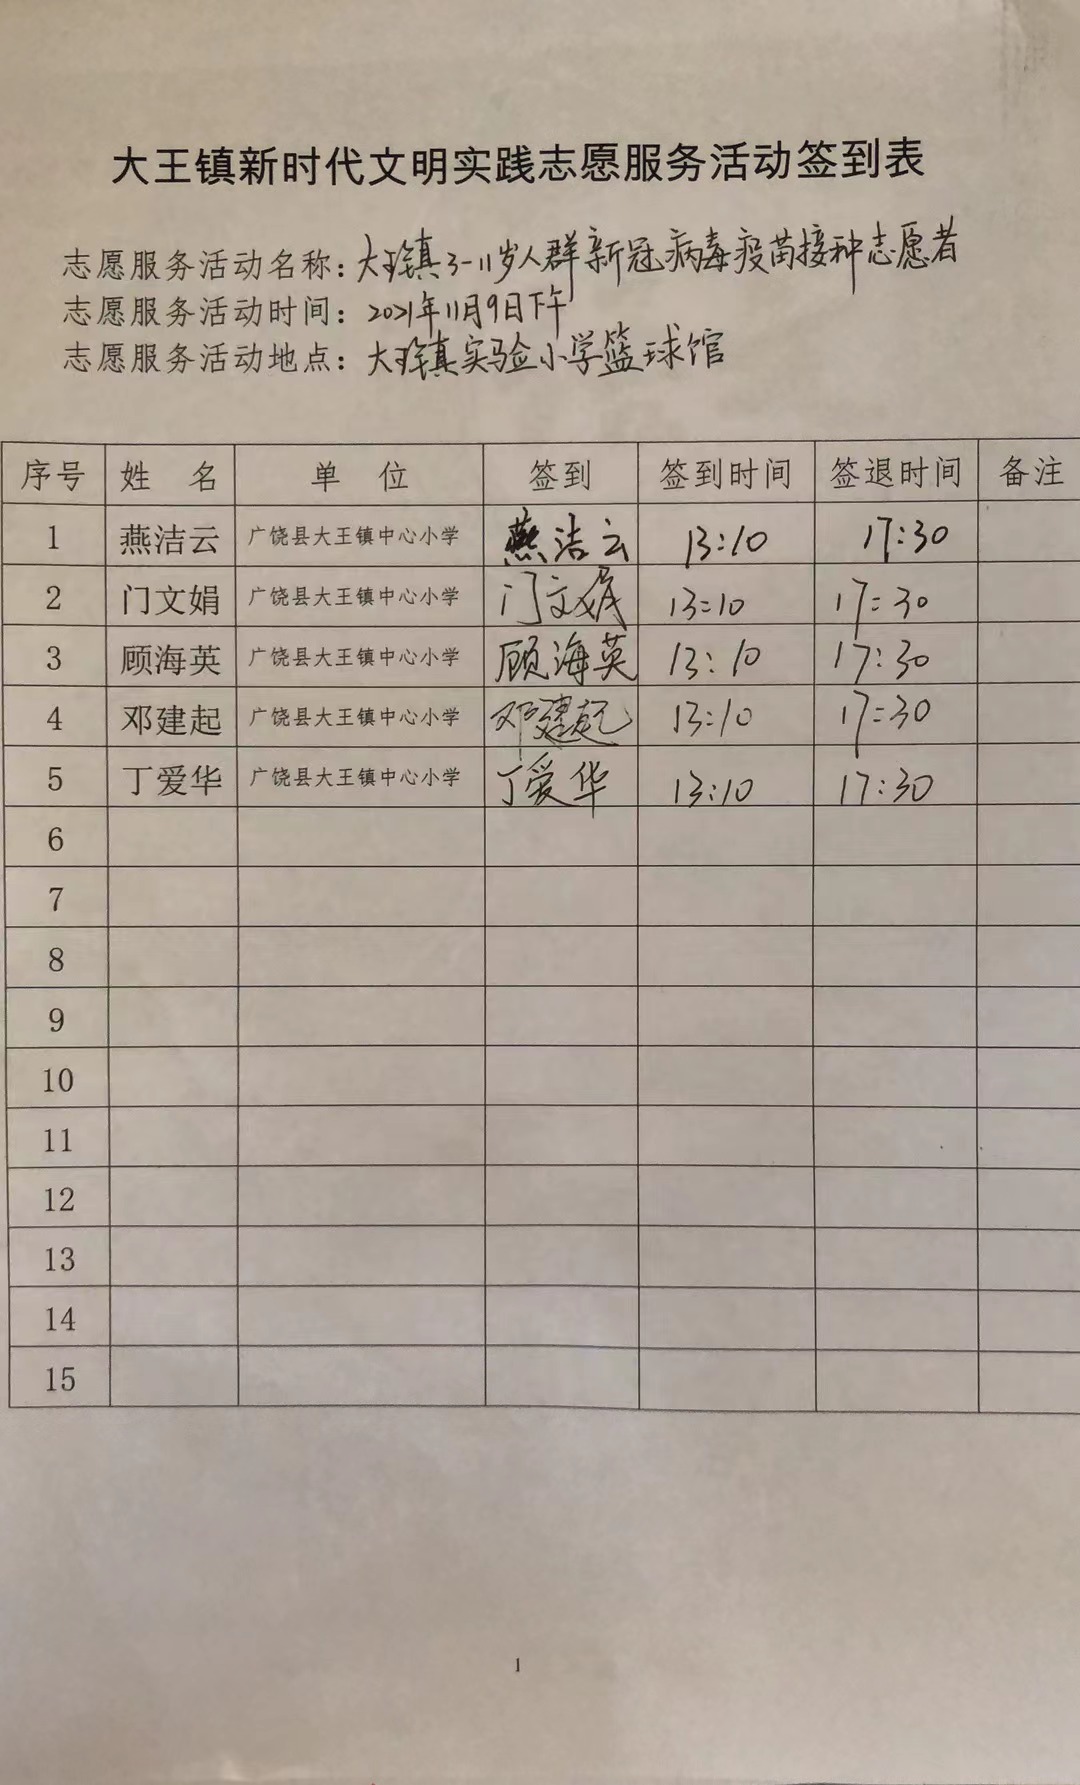 大王镇新时代文明实践志愿服务活动签到表
志愿服务活动名称：大王镇3-11岁人群新冠病毒疫苗接种志愿者
志愿服务活动时间：2021年11月9日下午
志愿服务活动地点：大王镇实验小学篮球馆
序号 姓 名 单 位 签到 签到时间 签退时间 备注
1 燕洁云 广饶县大王镇中心小学 燕洁云 13:10 17:30
2 门文娟 广饶县大王镇中心小学 门文娟 13:10 17:30
3 顾海英 广饶县大王镇中心小学 顾海英 13:10 17:30
4 邓建起 广饶县大王镇中心小学 邓建起 13:10 17:30
5 丁爱华 广饶县大王镇中心小学 丁爱华 13:10 17:30
6
7
8
9
10
11
12
13
14
15
1